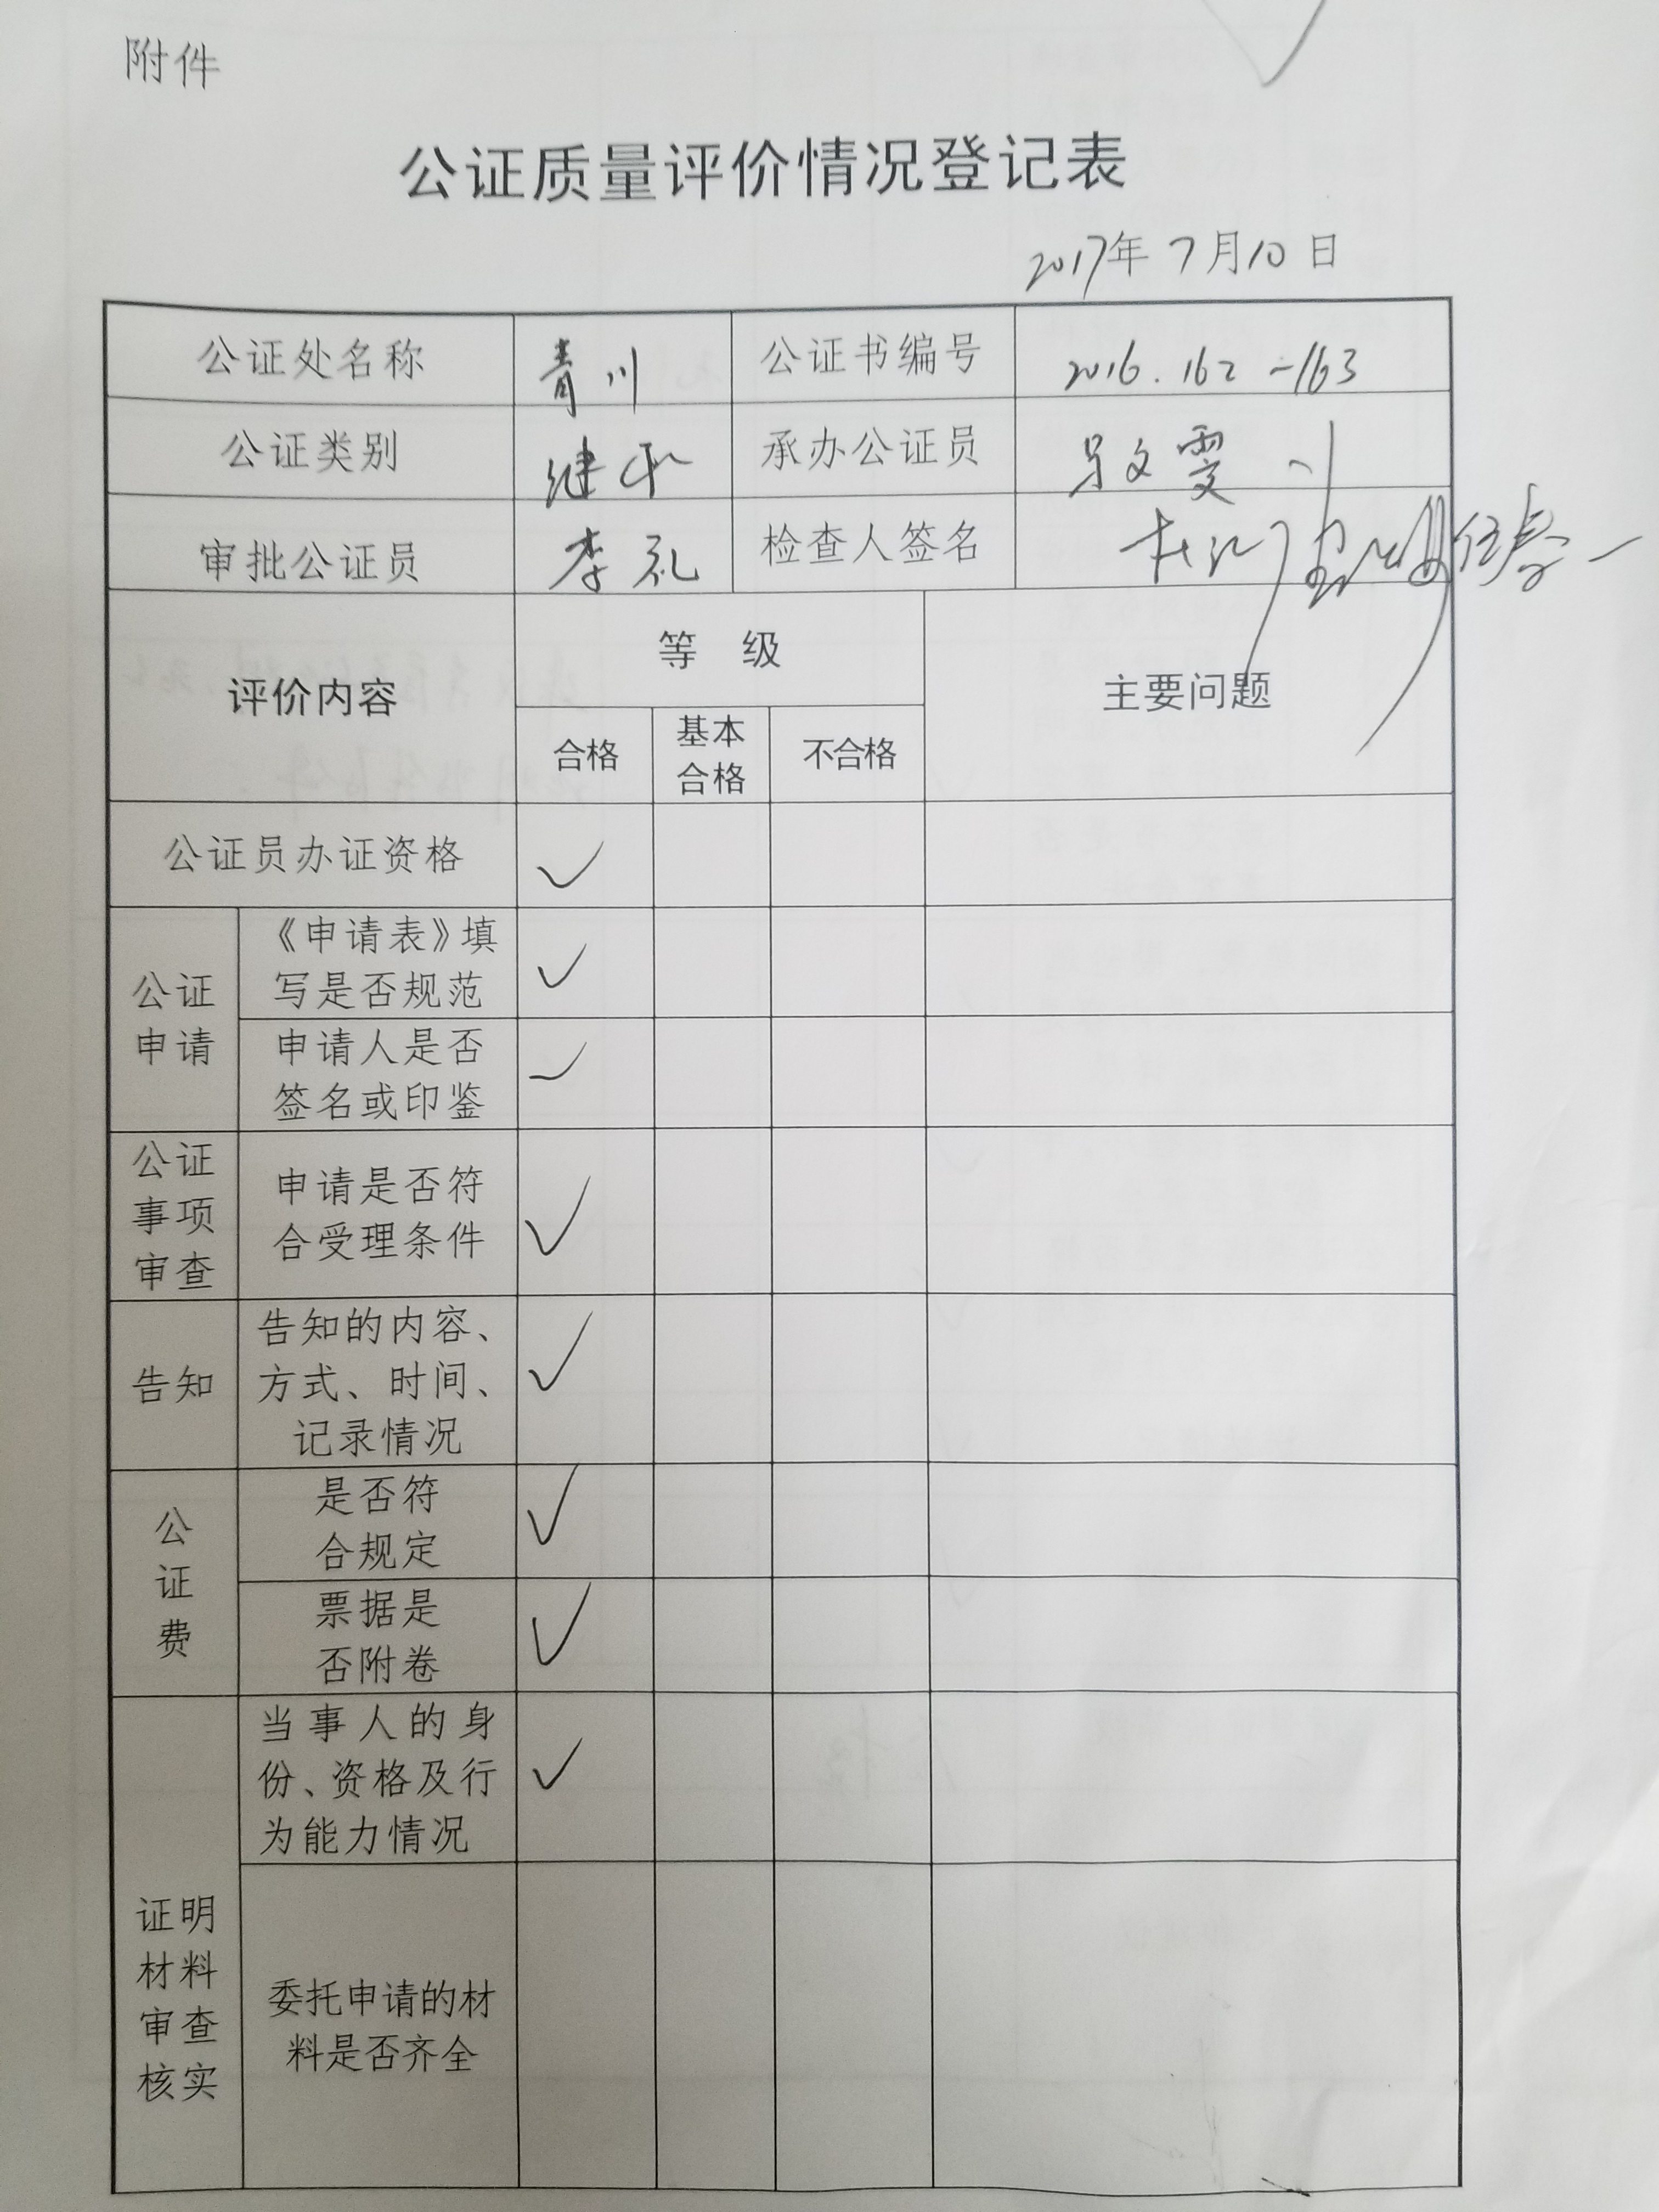 附件
公证质量评价情况登记表
2017年7月10日
公证处名称 青川 公证书编号 2016.162-163
公证类别 继承 承办公证员 文雯
审批公证员 李礼 检查人签名
评价内容 等级 主要问题
合格 基本合格 不合格
公证员办证资格 ✓
公证
申请
《申请表》填
写是否规范 ✓
申请人是否
签名或印鉴 ✓
公证
事项
审查
申请是否符
合受理条件 ✓
告知
告知的内容、
方式、时间、
记录情况 ✓
公
证
费
是否符
合规定 ✓
票据是
否附卷 ✓
证明
材料
审查
核实
当事人的身
份、资格及行
为能力情况 ✓
委托申请的材
料是否齐全